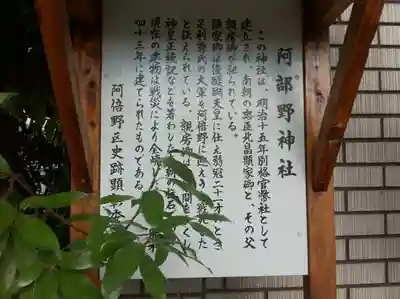 阿部野神社
この神社は、明治十五年別格官幣社として
建立され、南朝の忠臣北畠顕家卿と、その父
親房卿が祀られている。
顕家卿は後醍醐天皇に仕え弱冠二十一才のとき
足利尊氏の大軍を阿倍野に迎えう
と伝えられている。親房卿は
神皇正統記などを著わした
現在の建物は戦災により全焼した
四十三年に建てられたものである
阿倍野区史跡顕